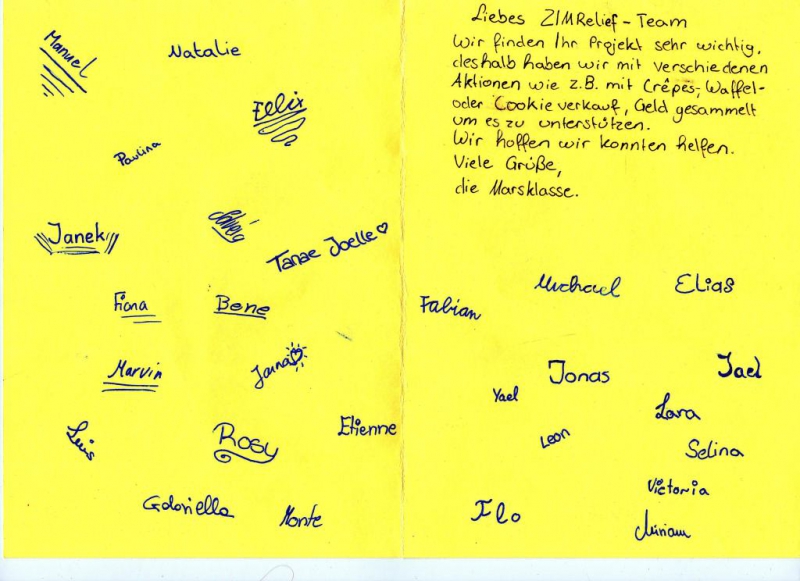 Manuel
Natalie
Felix
Paulina
Janek
Tanae Joelle
Fiona
Bene
Marvin
Jana
Luis
Rosy
Etienne
Gabriella
Monte
Liebes ZIMRelief-Team
Wir finden Ihr Projekt sehr wichtig,
deshalb haben wir mit verschiedenen
Aktionen wie z.B. mit Crêpes-, Waffel-
oder Cookieverkauf, Geld gesammelt
um es zu unterstützen.
Wir hoffen wir konnten helfen.
Viele Grüße,
die Marsklasse.
Fabian
Michael
Elias
Jonas
Jael
Yael
Lara
Leon
Selina
Victoria
Flo
Miriam